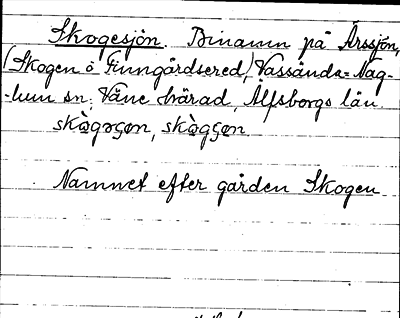 Skogesjön. Binamn på Årssjön,
(Skogen o Finngärdsered), Vassända-Nag-
-lum sn, Väne härad, Älfsborgs län
skò̤gəʂo̤n, skò̤gʂo̤n
Namnet efter gården Skogen